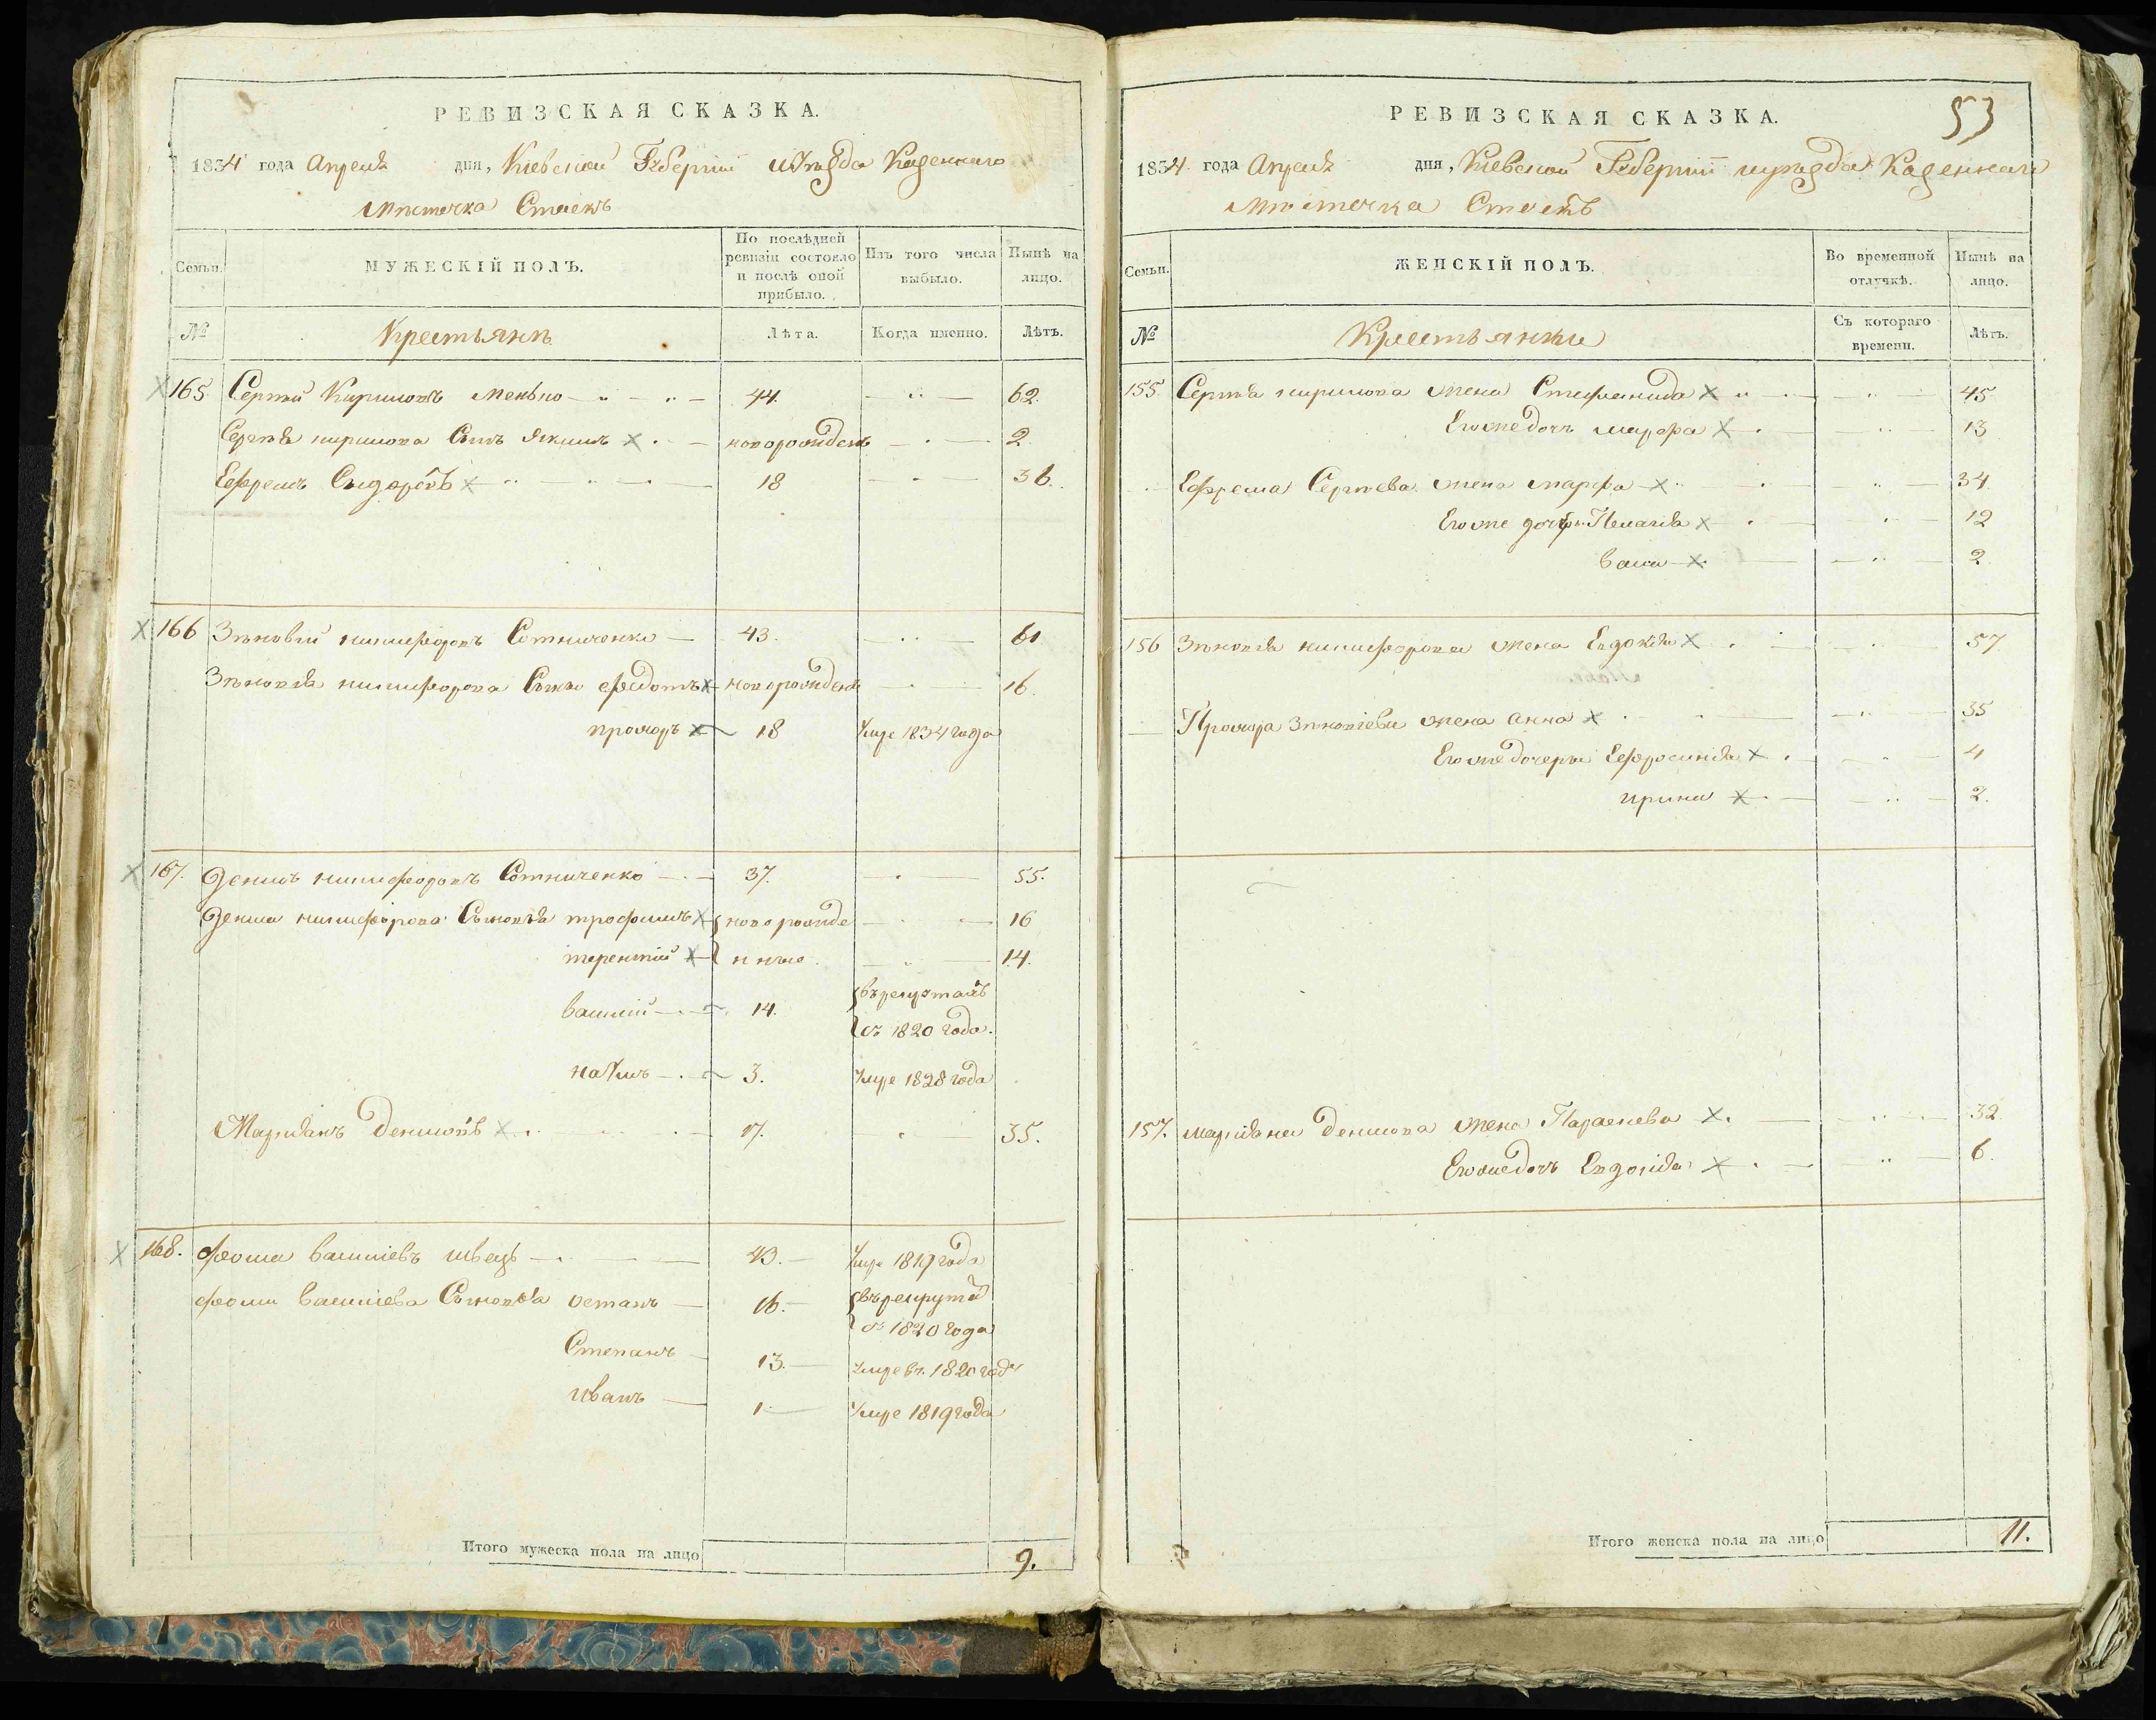 РЕВИЗСКАЯ СКАЗКА.
1834 года Апреля дня, Кіевской Губерніи уѣзда Каденкаго
Мѣстечка Стаекъ
Семьи.
МУЖЕСКІЙ ПОЛЪ.
По послѣдней ревизіи состояло и послѣ оной прибыло.
Изъ того числа выбыло.
Нынѣ на лицо.
№
Крестьянъ
Лѣта.
Когда именно.
Лѣтъ.
165. Сергѣй Кириловъ 44. 62.
Сергѣя кирилова Сынъ Якимъ новорожденъ 2
Ефремъ 18 36.
166 Зѣновій никифоровъ Сотниченко 43. 61
Зѣновія никифорова Сынъ федотъ новорожденъ 16.
прохоръ 18 умре 1834 года
167. Денисъ никифоровъ Сотниченко 37. 55.
Дениса никифорова Сыновья трофимъ новорожде 16
терентій нные. 14.
василій 14. въ рекрутахъ
съ 1820 года.
наумъ 3. умре 1828 года
Маркіанъ Денисовъ 17. 35.
168. Фома васильевъ швецъ 43. умре 1819 года
фомы васильева Сыновья остапъ 16. въ рекрутахъ
съ 1820 года
Степанъ 13. умре въ 1820 году
иванъ 1 умре 1819 года
Итого мужеска пола на лицо 9.
53
РЕВИЗСКАЯ СКАЗКА.
1834 года Апреля дня, Кіевской Губерніи уѣзда Каденкаго
Мѣстечка Стаекъ
Семьи.
ЖЕНСКІЙ ПОЛЪ.
Во временной отлучкѣ.
Нынѣ на лицо.
№
Крестьянки
Съ котораго времени.
Лѣтъ.
155. Сергѣя кирилова жена Стефанида 45
Его же дочь марфа 13
Ефрема Сергѣева жена марфа 34
Его же дочери Пелагія 12
2
156 Зѣновія никифорова жена Евдокія 57
Прохора Зѣновіева жена анна 35
Его же дочери Ефросинія 4
ирина 2.
157. маркіана Денисова жена Параскева 32.
Его же дочь Евдокія 6.
Итого женска пола на лицо 11.